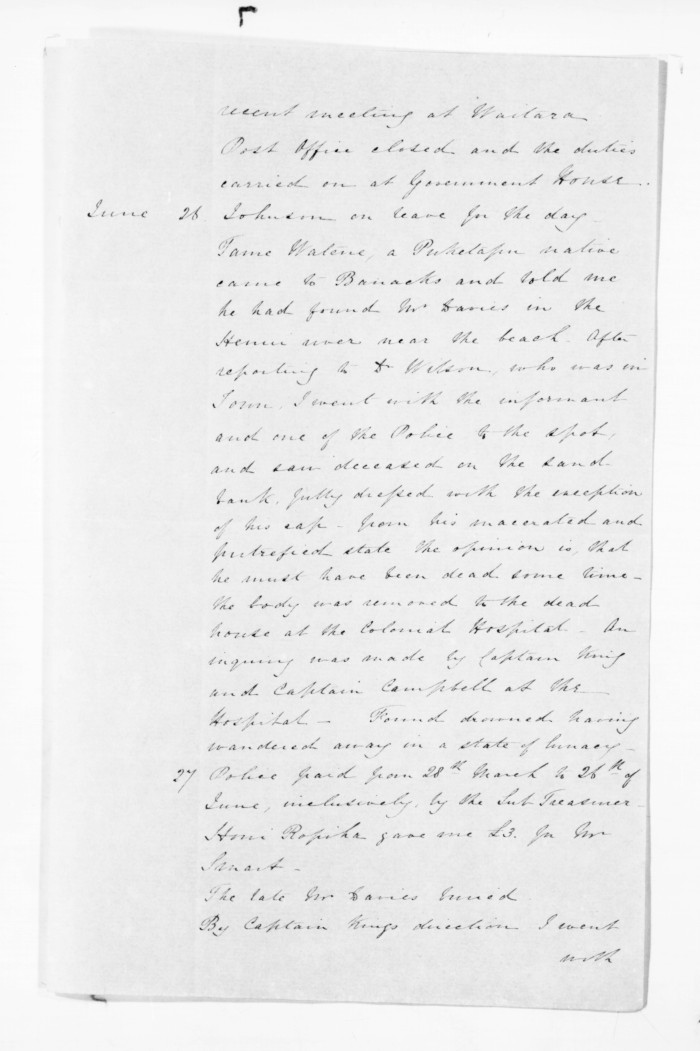 recent meeting at Waitara
Post Office closed and the duties
carried on at Government House.
June 26 Johnson on leave for the day -
Tame Watene, a Puketapu native
came to Barracks and told me
he had found Mr Davies in the
Henui river near the beach. After
reporting to Dr Wilson, who was in
Town, I went with the informant
and one of the Police to the spot,
and saw deceased on the sand
bank, fully dressed with the exception
of his cap - from his macerated and
putrefied state the opinion is, that
he must have been dead some time -
the body was removed to the dead
house at the Colonial Hospital - An
inquiry was made by Captain King
and Captain Campbell at the
Hospital - Found drowned having
wandered away in a state of lunacy -
27 Police paid from 28th March to 26th of
June, inclusively, by the Sub Treasurer -
Honi Ropiha gave me £3. for Mr
Smart -
The late Mr Davies buried
By Captain Kings direction I went
with